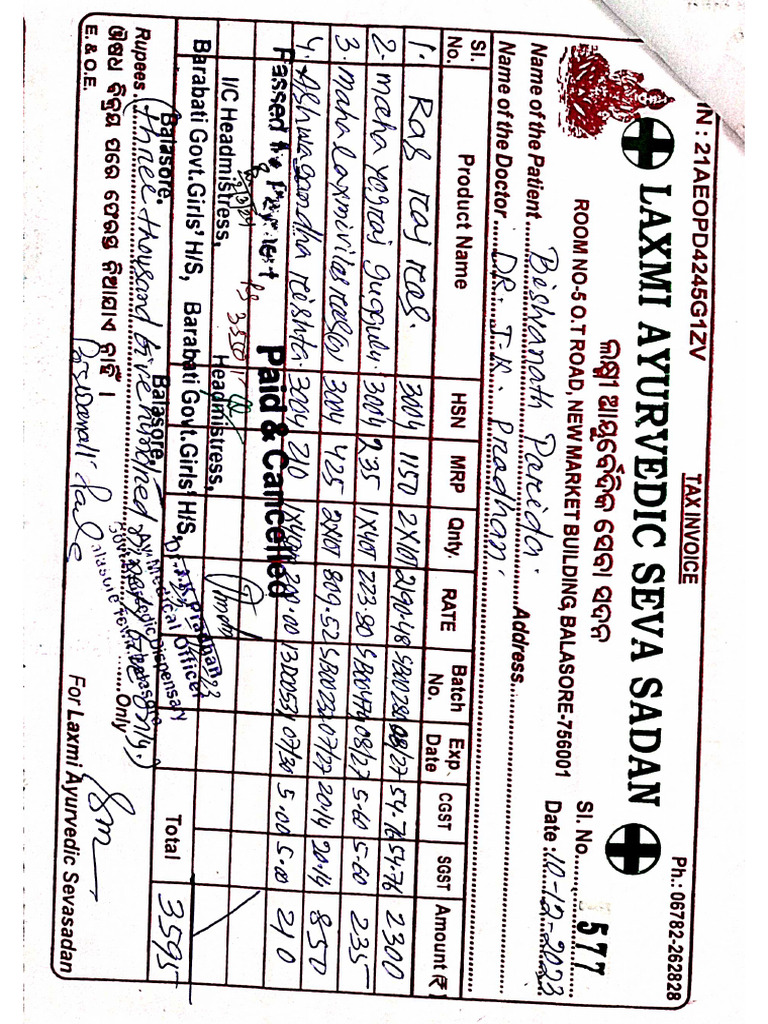 IN : 21AEOPD4245G1ZV
TAX INVOICE
Ph.: 06782-262828
LAXMI AYURVEDIC SEVA SADAN
ଲକ୍ଷ୍ମୀ ଆୟୁର୍ବେଦିକ ସେବା ସଦନ
ROOM NO-5 O.T ROAD, NEW MARKET BUILDING, BALASORE-756001
Sl. No. 577
Name of the Patient Biswanath Parida. Address
Date : 10-12-2023
Name of the Doctor DR. T.K. Pradhan.
Sl. No. Product Name HSN MRP Qnty. RATE Batch No. Exp. Date CGST SGST Amount ₹
1. Ras Raj Ras. 3004 1150 2X10T 2190.48 08/27 54.76 54.76 2300
2. Maha Yograj Guggulu. 3004 235 1X40T 223.80 08/27 5.60 5.60 235
3. Mahalaxmivilas 3004 425 2X10T 809.52 07/27 20.14 20.14 850
4. Ashwagandha Rishta. 3004 210 200.00 07/30 5.00 5.00 210
Passed for Payment Rs 3550
Paid & Cancelled
I/C Headmistress, Headmistress,
Barabati Govt.Girls' H/S, Barabati Govt.Girls' H/S,
Balasore. Balasore.
Dr. T.K Pradhan
Ay. Medical Officer
Total 3595
Rupees (Three thousand five hundred Only
ଔଷଧ ବିକ୍ରିତ ପରେ ଫେରସ୍ତ ନିଆଯାଏ ନାହିଁ ।
E. & O.E.
For Laxmi Ayurvedic Sevasadan